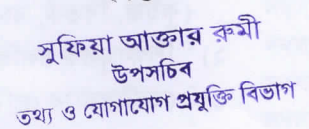 সুফিয়া আক্তার রুমী
উপসচিব
তথ্য ও যোগাযোগ প্রযুক্তি বিভাগ